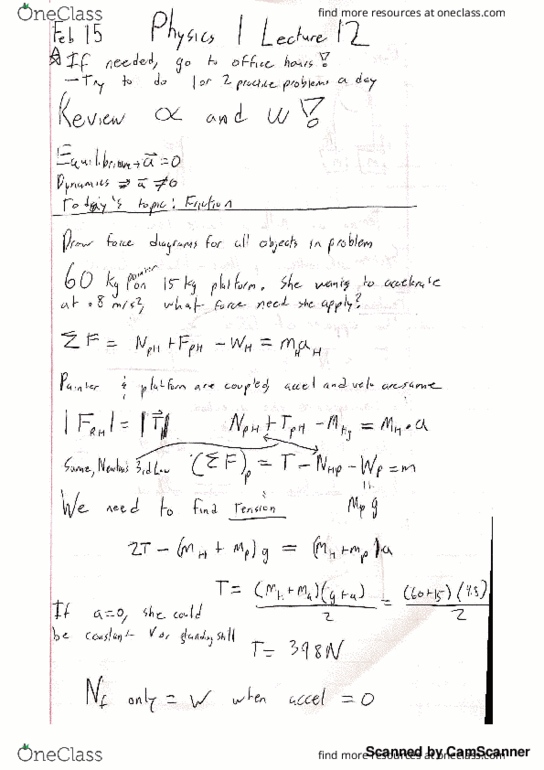 OneClass
find more resources at oneclass.com
Feb 15 Physics 1 Lecture 12
☆ If needed, go to office hours!
– Try to do 1 or 2 practice problems a day
Review ∝ and W!
Equilibrium → a⃗ = 0
Dynamics ⇒ a⃗ ≠ 0
Today's topic: Friction
Draw force diagrams for all objects in problem
60 kg painter on 15 kg platform. She wants to accelerate
at .8 m/s², what force need she apply?
ΣF = N_pH + F_pH – W_H = m_H a_H
Painter & platform are coupled, accel and velo are same
|F_RH| = |T⃗| N_pH + T_pH – M_Hg = M_H · a
Same, Newton's 3rd Law (ΣF)_p = T – N_Hp – W_p = m
M_p g
We need to find Tension
2T – (M_H + M_p)g = (M_H + m_p)a
T = (M_H + M_a)(g + a) / 2 = (60+15)(9.8) / 2
If a=0, she could
be constant V or standing still
T = 398N
N_f only = W when accel = 0
OneClass
find more resources at oneclass.com
Scanned by CamScanner